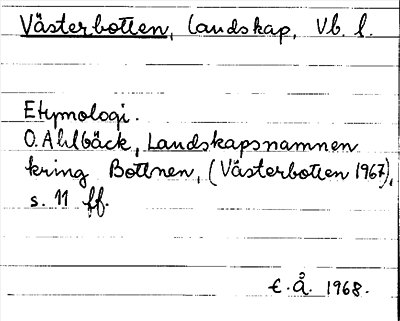 Västerbotten, landskap, Vb. l.
Etymologi.
O. Ahlbäck, Landskapsnamnen
kring Bottnen, (Västerbotten 1967),
s. 11 ff.
E. Å. 1968.